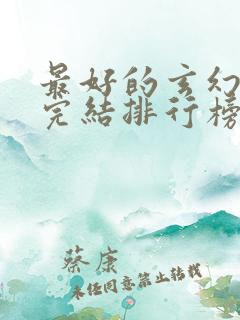 最好的玄幻
完结排行榜
蔡康
未经同意禁止转载